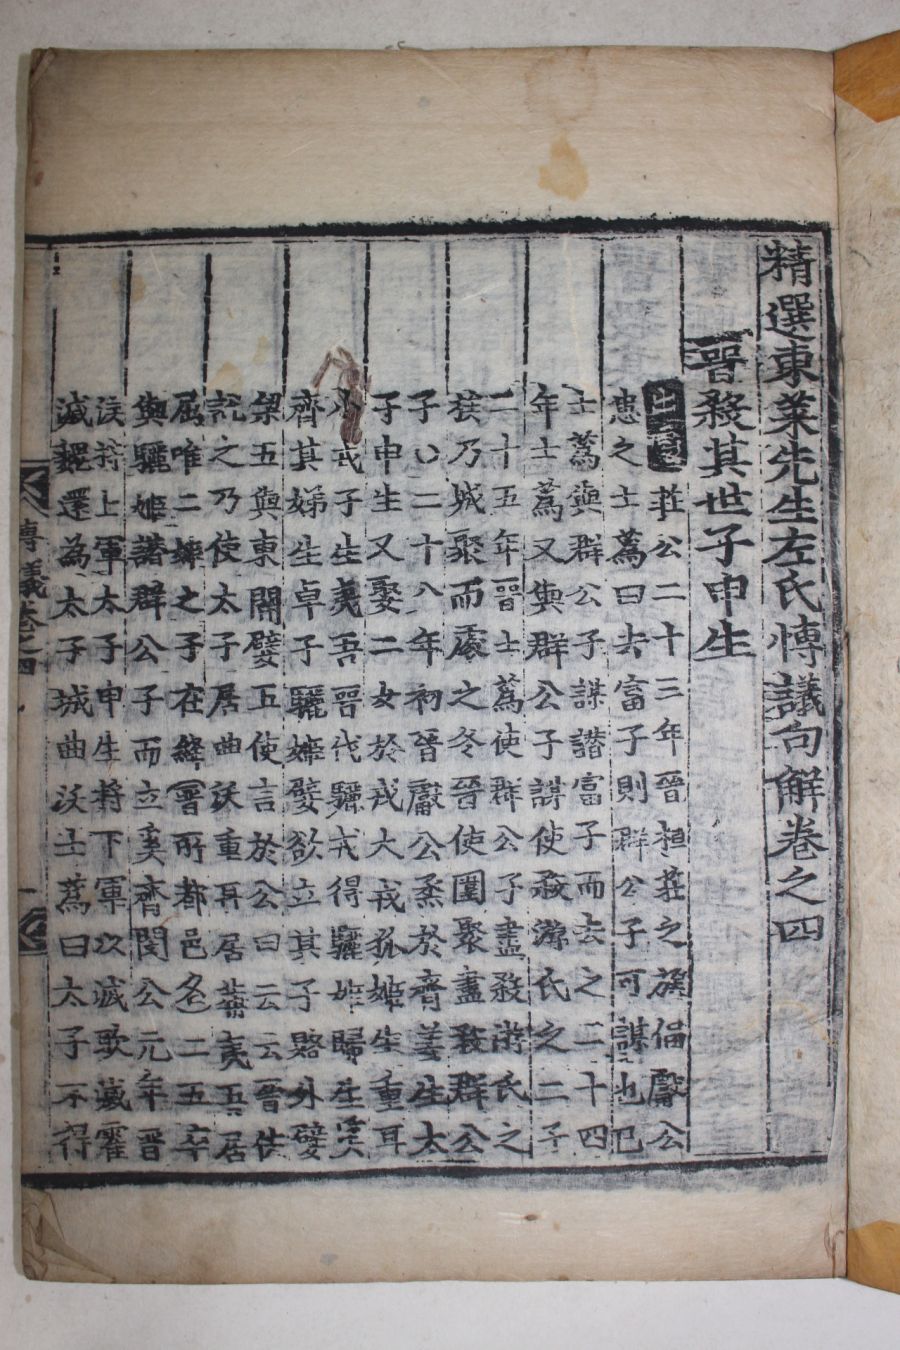 精選東萊先生左氏博議句解卷之四
晉殺其世子申生
出處 莊公二十三年晉桓莊之族偪獻公
患之士蒍曰去富子則群公子可謀也已
士蒍與群公子謀譖富子而去之二十四
年士蒍又與群公子謀使殺游氏之二子
二十五年晉士蒍使群公子盡殺游氏之
族乃城聚而處之冬晉使圍聚盡殺群公
子○二十八年初晉獻公烝於齊姜生太
子申生又娶二女於戎大戎狐姬生重耳
小戎子生夷吾晉伐驪戎得驪姬歸生奚
齊其娣生卓子驪姬嬖欲立其子賂外嬖
梁五與東關嬖五使言於公曰云云晉侯
說之乃使太子居曲沃重耳居蒲夷吾居
屈唯二姬之子在絳(晉所都邑名)二五卒
與驪姬譖群公子而立奚齊閔公元年晉
侯將上軍太子申生將下軍以滅耿滅霍
滅魏還為太子城曲沃士蒍曰太子不得
傳議卷之四 一